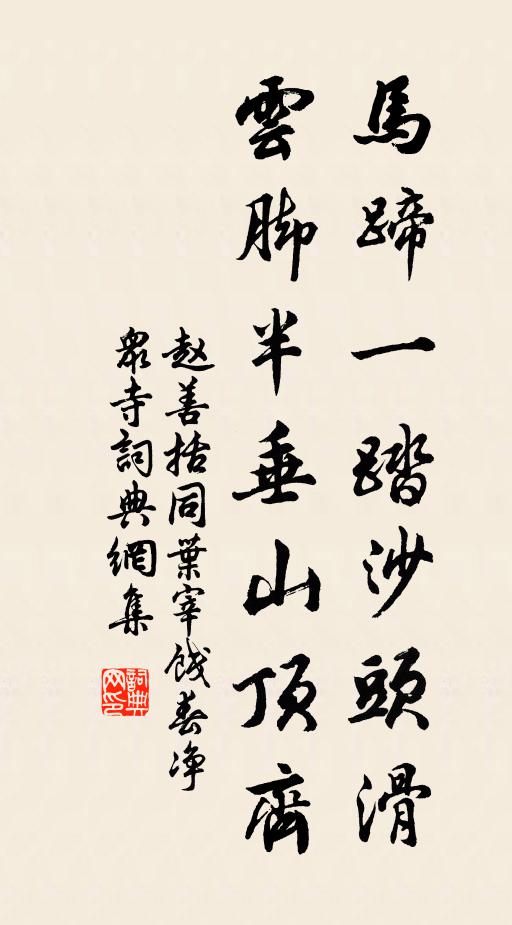 馬蹄一踏沙頭滑
雲脚半垂山頂齊
赵善括同葉宰餞春净
衆寺詞典網集
詞典网印